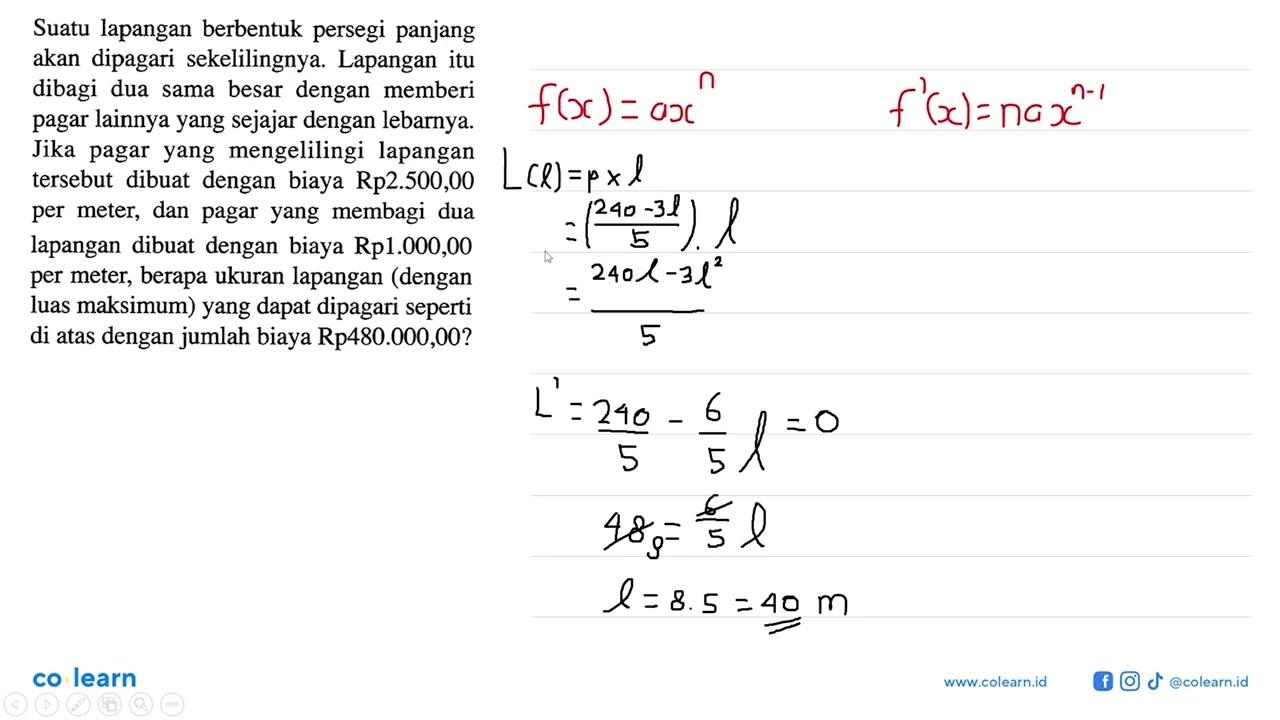 Suatu lapangan berbentuk persegi panjang
akan dipagari sekelilingnya. Lapangan itu
dibagi dua sama besar dengan memberi
pagar lainnya yang sejajar dengan lebarnya.
Jika pagar yang mengelilingi lapangan
tersebut dibuat dengan biaya Rp2.500,00
per meter, dan pagar yang membagi dua
lapangan dibuat dengan biaya Rp1.000,00
per meter, berapa ukuran lapangan (dengan
luas maksimum) yang dapat dipagari seperti
di atas dengan jumlah biaya Rp480.000,00?
f(x) = ax^n
f'(x) = nax^(n-1)
L(l) = p × l
= ((240 - 3l)/5) . l
= (240l - 3l²)/5
L' = 240/5 - 6/5 l = 0
48 8 = 6/5 l
l = 8.5 = 40 m
co learn
www.colearn.id
@colearn.id